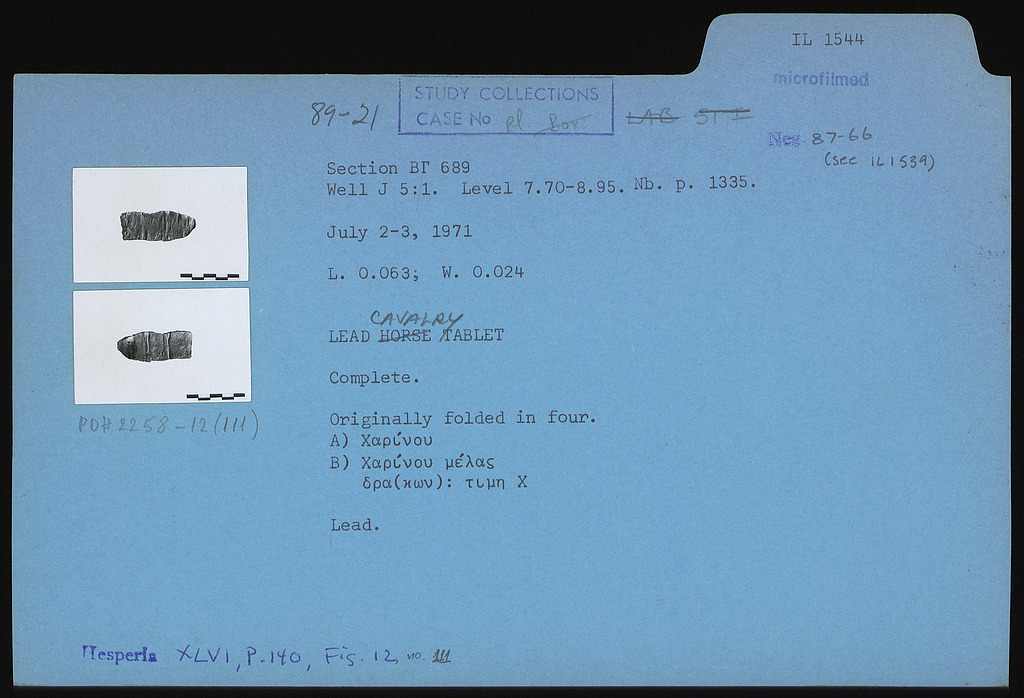 IL 1544
microfilmed
89-21
STUDY COLLECTIONS
CASE No pl Box
LAB ST I
Neg. 87-66
(see IL 1539)
Section ΒΓ 689
Well J 5:1. Level 7.70-8.95. Nb. p. 1335.
July 2-3, 1971
L. 0.063; W. 0.024
CAVALRY
LEAD HORSE TABLET
Complete.
Originally folded in four.
A) Χαρίνου
B) Χαρίνου μέλας
δρα(κων): τιμη Χ
Lead.
PD# 2258-12 (111)
Hesperia XLVI, P. 140, Fig. 12, no. 111